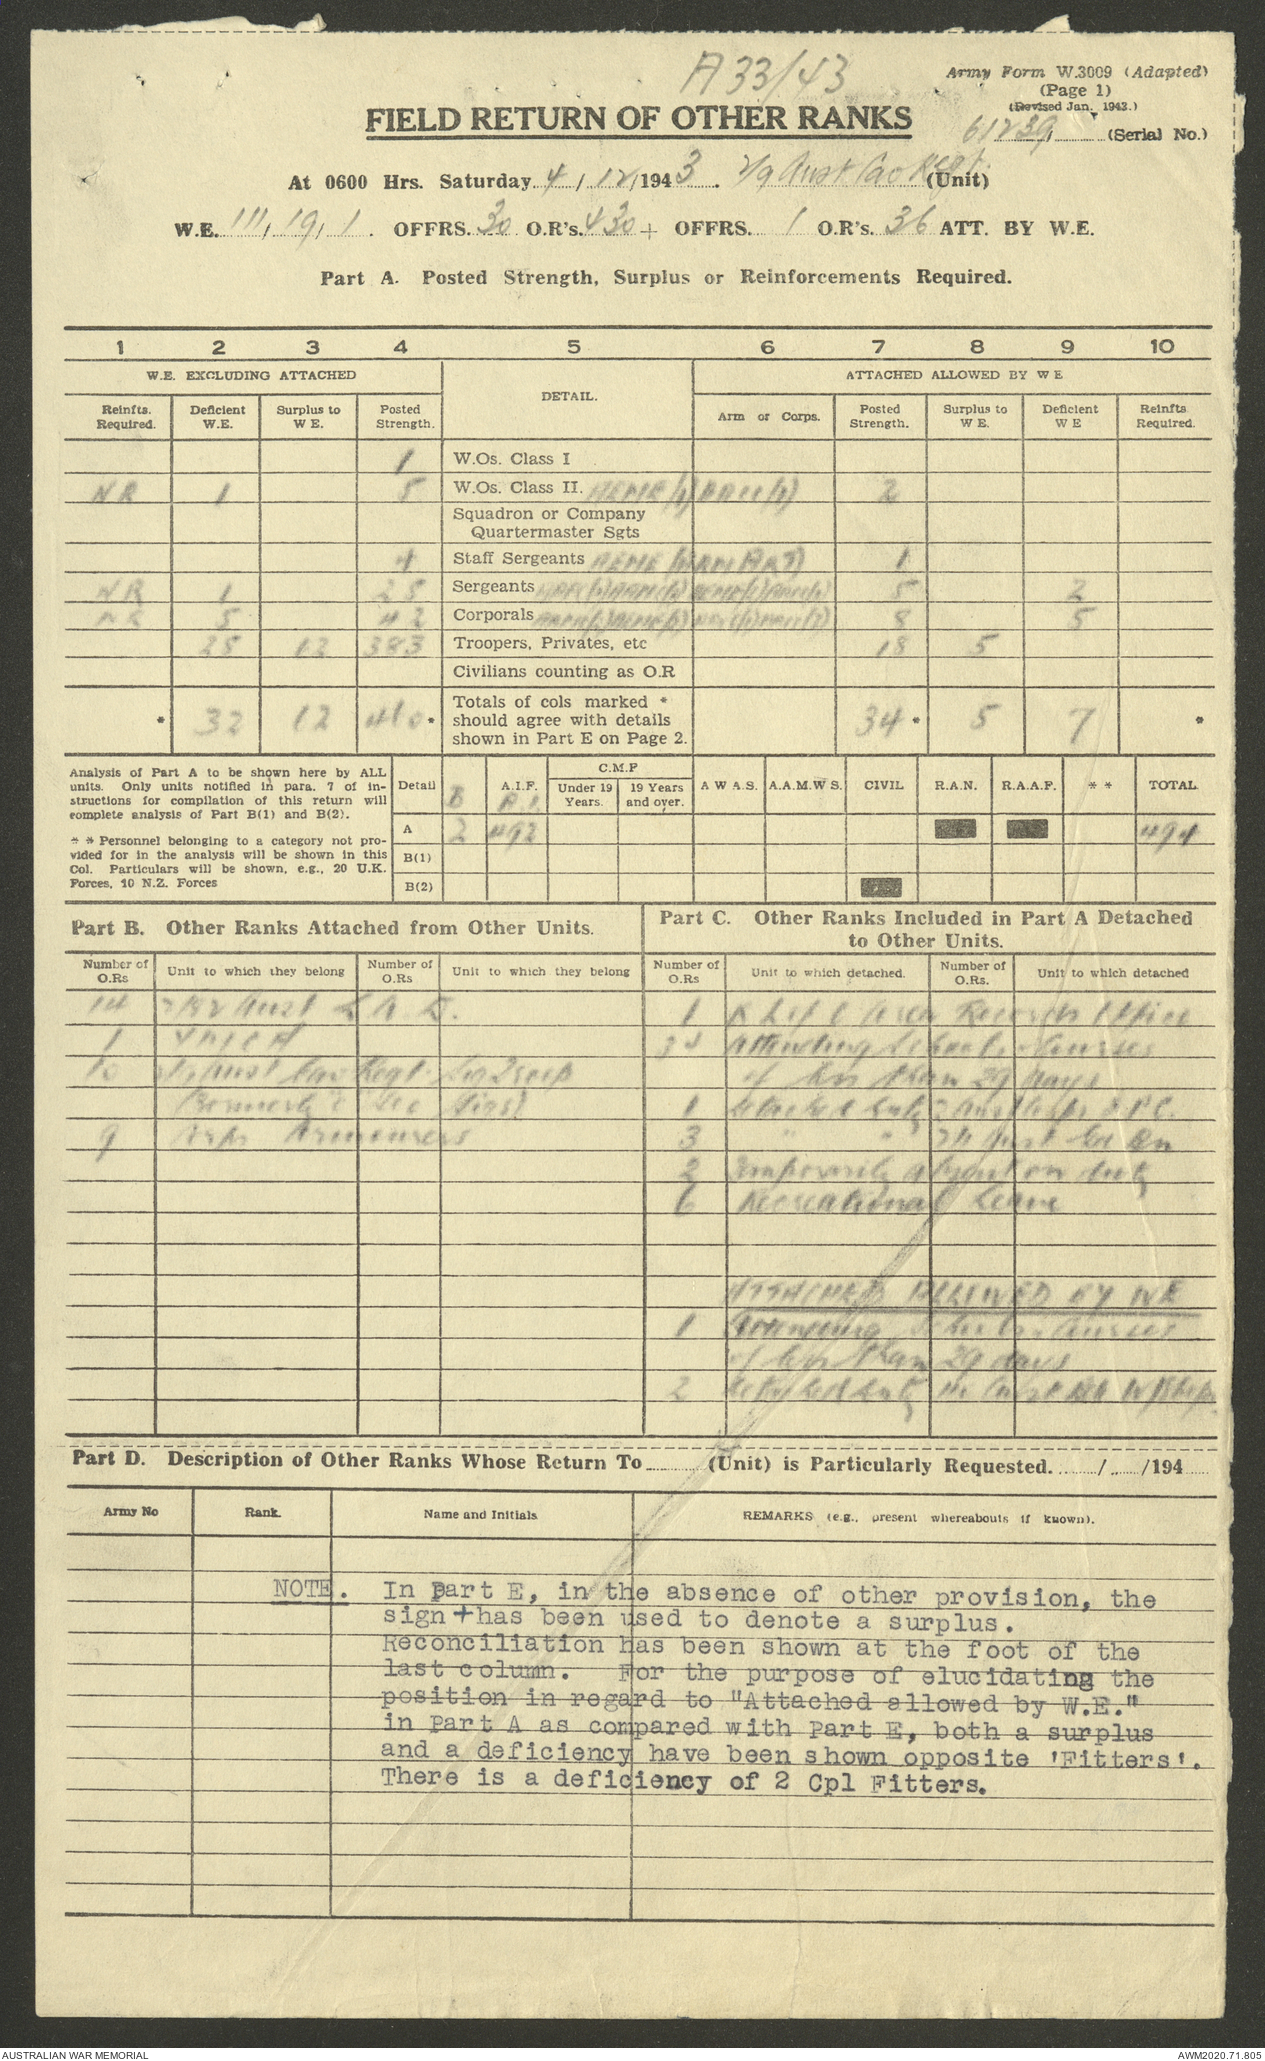 A33/43
Army Form W.3009 (Adapted)
(Page 1)
(Revised Jan. 1943.)
FIELD RETURN OF OTHER RANKS
61239 (Serial No.)
At 0600 Hrs. Saturday 4/12/1943. 2/9 Aust Cav Regt. (Unit)
W.E. 111, 19, 1. OFFRS. 30 O.R's. 430 + OFFRS. 1 O.R's. 36 ATT. BY W.E.
Part A. Posted Strength, Surplus or Reinforcements Required.
1 2 3 4 5 6 7 8 9 10
W.E. EXCLUDING ATTACHED DETAIL. ATTACHED ALLOWED BY W E
Reinfts. Required. Deficient W.E. Surplus to W E. Posted Strength. Arm or Corps. Posted Strength. Surplus to W E. Deficient W E Reinfts. Required.
1 W.Os. Class I
NR 1 5 W.Os. Class II. 2
Squadron or Company
Quartermaster Sgts
4 Staff Sergeants 1
NR 1 25 Sergeants 5 2
NR 5 42 Corporals 8 5
25 12 383 Troopers, Privates, etc 18 5
Civilians counting as O.R
* 32 12 410 * Totals of cols marked * should agree with details shown in Part E on Page 2. 34 * 5 7 *
Analysis of Part A to be shown here by ALL
units. Only units notified in para. 7 of in-
structions for compilation of this return will
complete analysis of Part B(1) and B(2).
* * Personnel belonging to a category not pro-
vided for in the analysis will be shown in this
Col. Particulars will be shown, e.g., 20 U.K.
Forces, 10 N.Z. Forces
Detail B A.I.F. C.M.F Under 19 Years. 19 Years and over. A W A S. A.A.M.W S. CIVIL R.A.N. R.A.A.F. * * TOTAL
A 2 492 494
B(1)
B(2)
Part B. Other Ranks Attached from Other Units.
Number of O.Rs Unit to which they belong Number of O.Rs Unit to which they belong
14 Aust L.A.D.
1 YMCA
10 Aust Cav Regt Sig Troop
(Formerly "C" Sec Sigs)
9 Armourers
Part C. Other Ranks Included in Part A Detached
to Other Units.
Number of O.Rs Unit to which detached. Number of O.Rs. Unit to which detached
1 Records Office
Attending Schools & Courses
of less than 29 days
1 Detached duty
3 " " Aust
2 Temporarily absent on duty
6 Recreational Leave
ATTACHED ALLOWED BY WE
1 Attending Courses
of less than 29 days
2 Detached duty
Part D. Description of Other Ranks Whose Return To ........ (Unit) is Particularly Requested. ....../....../194......
Army No Rank. Name and Initials REMARKS (e.g., present whereabouts if known).
NOTE. In Part E, in the absence of other provision, the
sign + has been used to denote a surplus.
Reconciliation has been shown at the foot of the
last column. For the purpose of elucidating the
position in regard to "Attached allowed by W.E."
in Part A as compared with Part E, both a surplus
and a deficiency have been shown opposite 'Fitters'.
There is a deficiency of 2 Cpl Fitters.
AUSTRALIAN WAR MEMORIAL
AWM2020.71.805